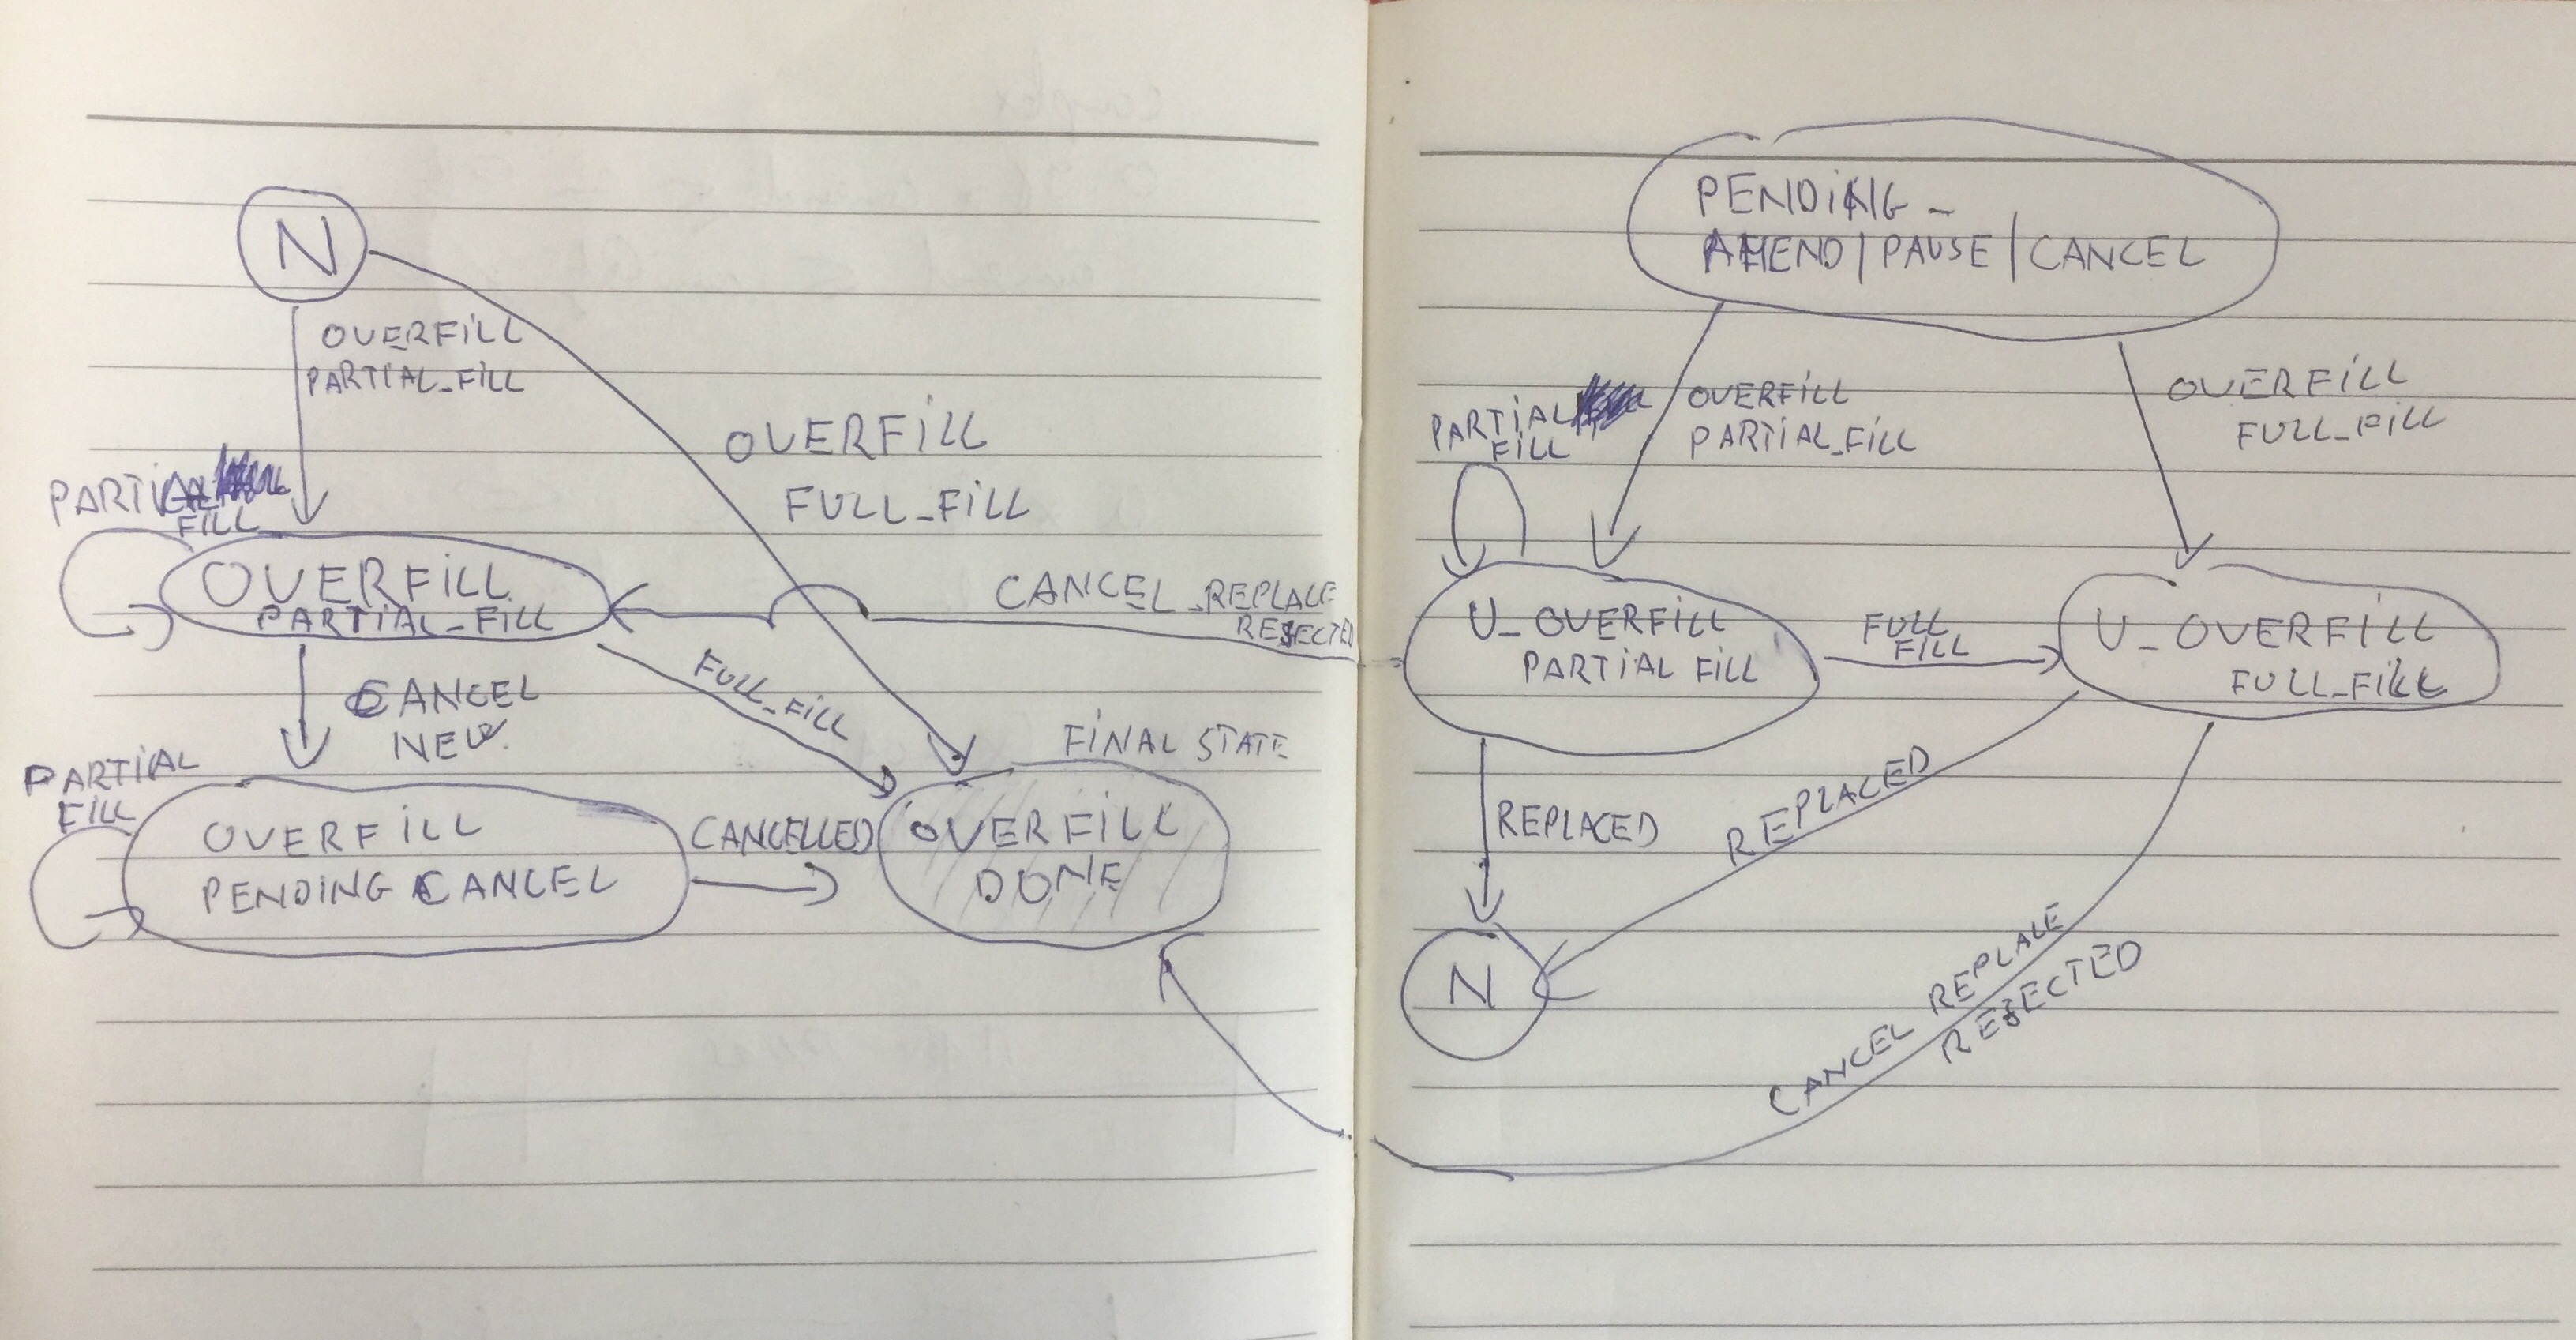 N
OVERFILL
PARTIAL_FILL
OVERFILL
FULL_FILL
PARTIAL
FILL
OVERFILL
PARTIAL_FILL
CANCEL_REPLACE
REJECTED
CANCEL
NEW
FULL_FILL
FINAL STATE
PARTIAL
FILL
OVERFILL
PENDING CANCEL
CANCELLED
OVERFILL
DONE
PENDING_
AMEND/PAUSE/CANCEL
PARTIAL
FILL
OVERFILL
PARTIAL_FILL
OVERFILL
FULL_FILL
U_OVERFILL
PARTIAL FILL
FULL
FILL
U_OVERFILL
FULL_FILL
REPLACED
REPLACED
N
CANCEL REPLACE
REJECTED